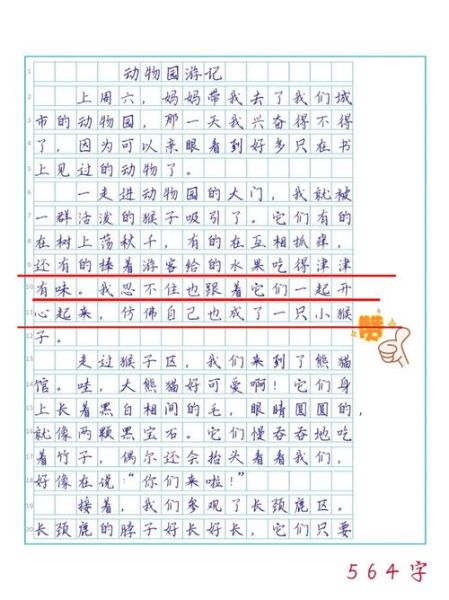 动物园游记
上周六，妈妈带我去了我们城
市的动物园，那一天我兴奋得不得
了，因为可以亲眼看到好多只在书
上见过的动物了。
一走进动物园的大门，我就被
一群活泼的猴子吸引了。它们有的
在树上荡秋千，有的在互相抓痒，
还有的捧着游客给的水果吃得津津
有味。我忍不住也跟着它们一起开
心起来，仿佛自己也成了一只小猴
子。
走过猴子区，我们来到了熊猫
馆。哇，大熊猫好可爱啊！它们身
上长着黑白相间的毛，眼睛圆圆的，
就像两颗黑宝石。它们慢吞吞地吃
着竹子，偶尔还会抬头看看我们，
好像在说：“你们来啦！”
接着，我们参观了长颈鹿区。
长颈鹿的脖子好长好长，它们只要
赞
564字